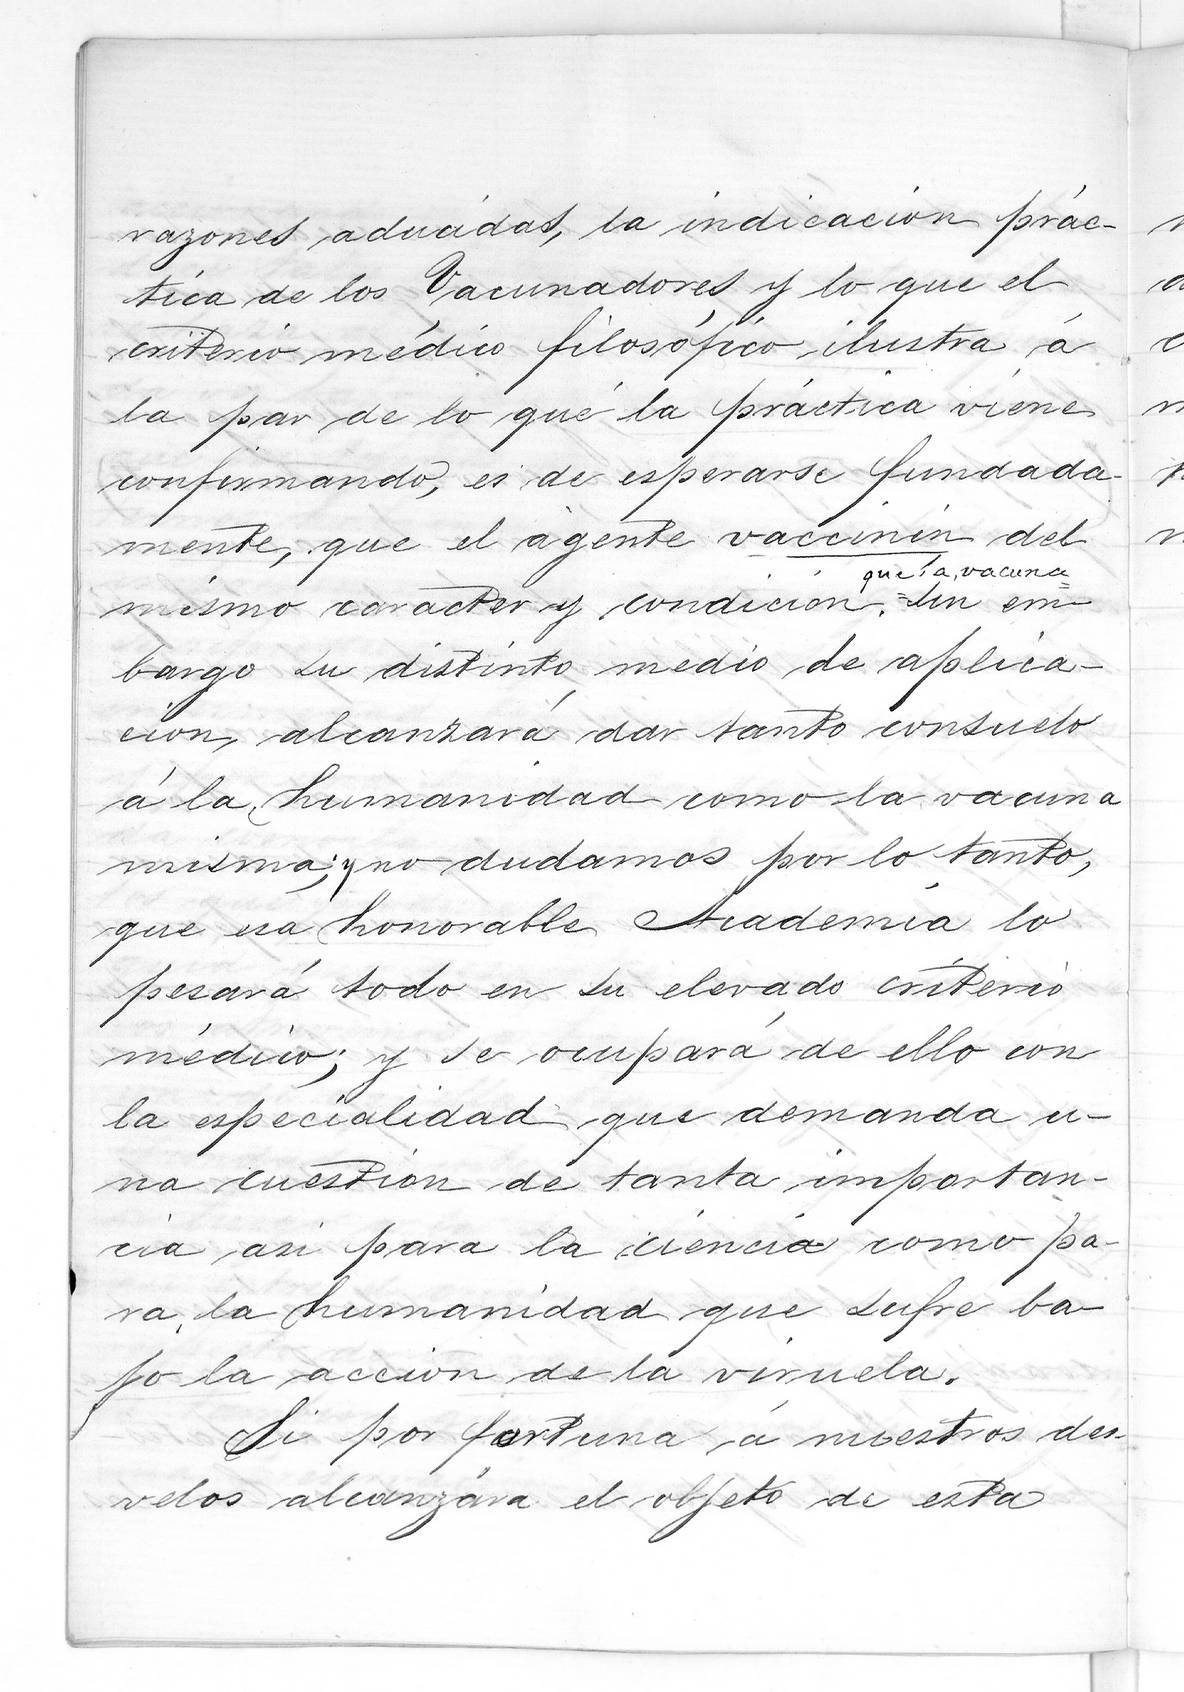 razones aducidas, la indicación prác-
tica de los Vacunadores y lo que el
criterio médico filosófico ilustra á
la par de lo que la práctica viene
confirmando, es de esperarse fundada-
mente, que el agente vaccinin del
que la vacuna
mismo caracter y condición. =Sin em-
bargo su distinto medio de aplica-
cion, alcanzará dar tanto consuelo
á la humanidad como la vacuna
misma; y no dudamos por lo tanto,
que esa honorable Academia lo
pesará todo en su elevado criterio
médico; y se ocupará de ello con
la especialidad que demanda u-
na cuestion de tanta importan-
cia asi para la ciencia como pa-
ra la humanidad que sufre ba-
jo la accion de la viruela.
Si por fortuna á nuestros des-
velos alcanzára el objeto de esta